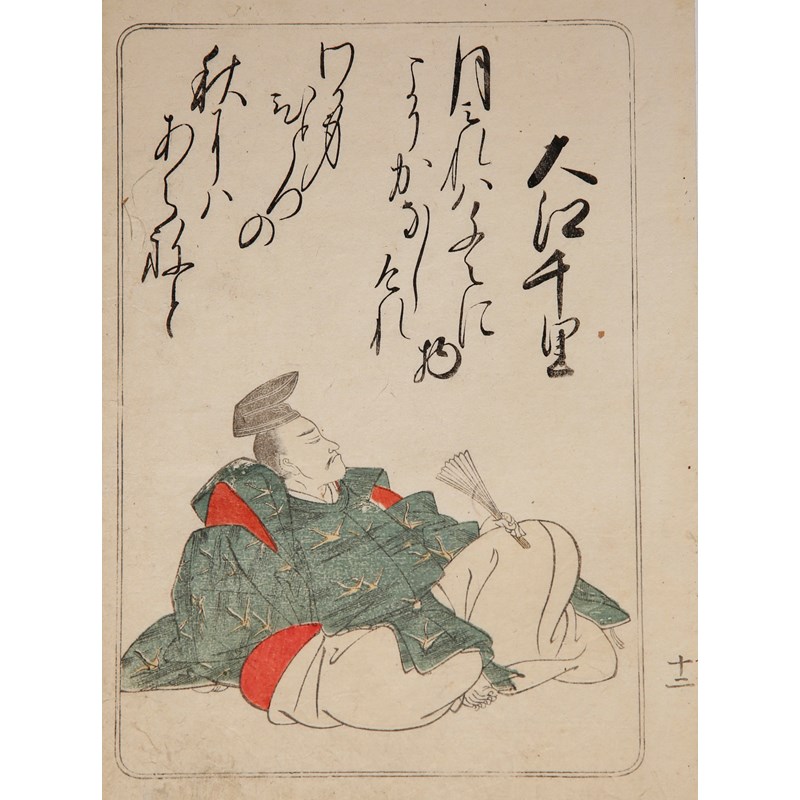 大江千里
月みれハ千々に物
こそかなしけれ
わか身
ひとつの
秋にハ
あらねと
十二